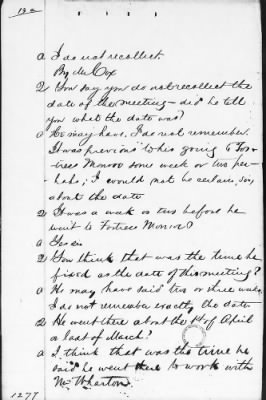 13 a
a I do not recollect.
By Mr Cox
Q You say you do not recollect the
date of the meeting — did he tell
you what the date was?
a He may have. I do not remember.
It was previous to his going to For-
tress Monroe some week or two per-
haps; I would not be certain, sir,
about the date
Q It was a week or two before he
went to Fortress Monroe?
a Yes sir
Q You think that was the time he
fixed as the date of this meeting?
a He may have said two or three weeks
I do not remember exactly the date
Q He went there about the 1st of April
or last of March?
a I think that was the time he
said he went there to work with
Mr Wharton.
1277